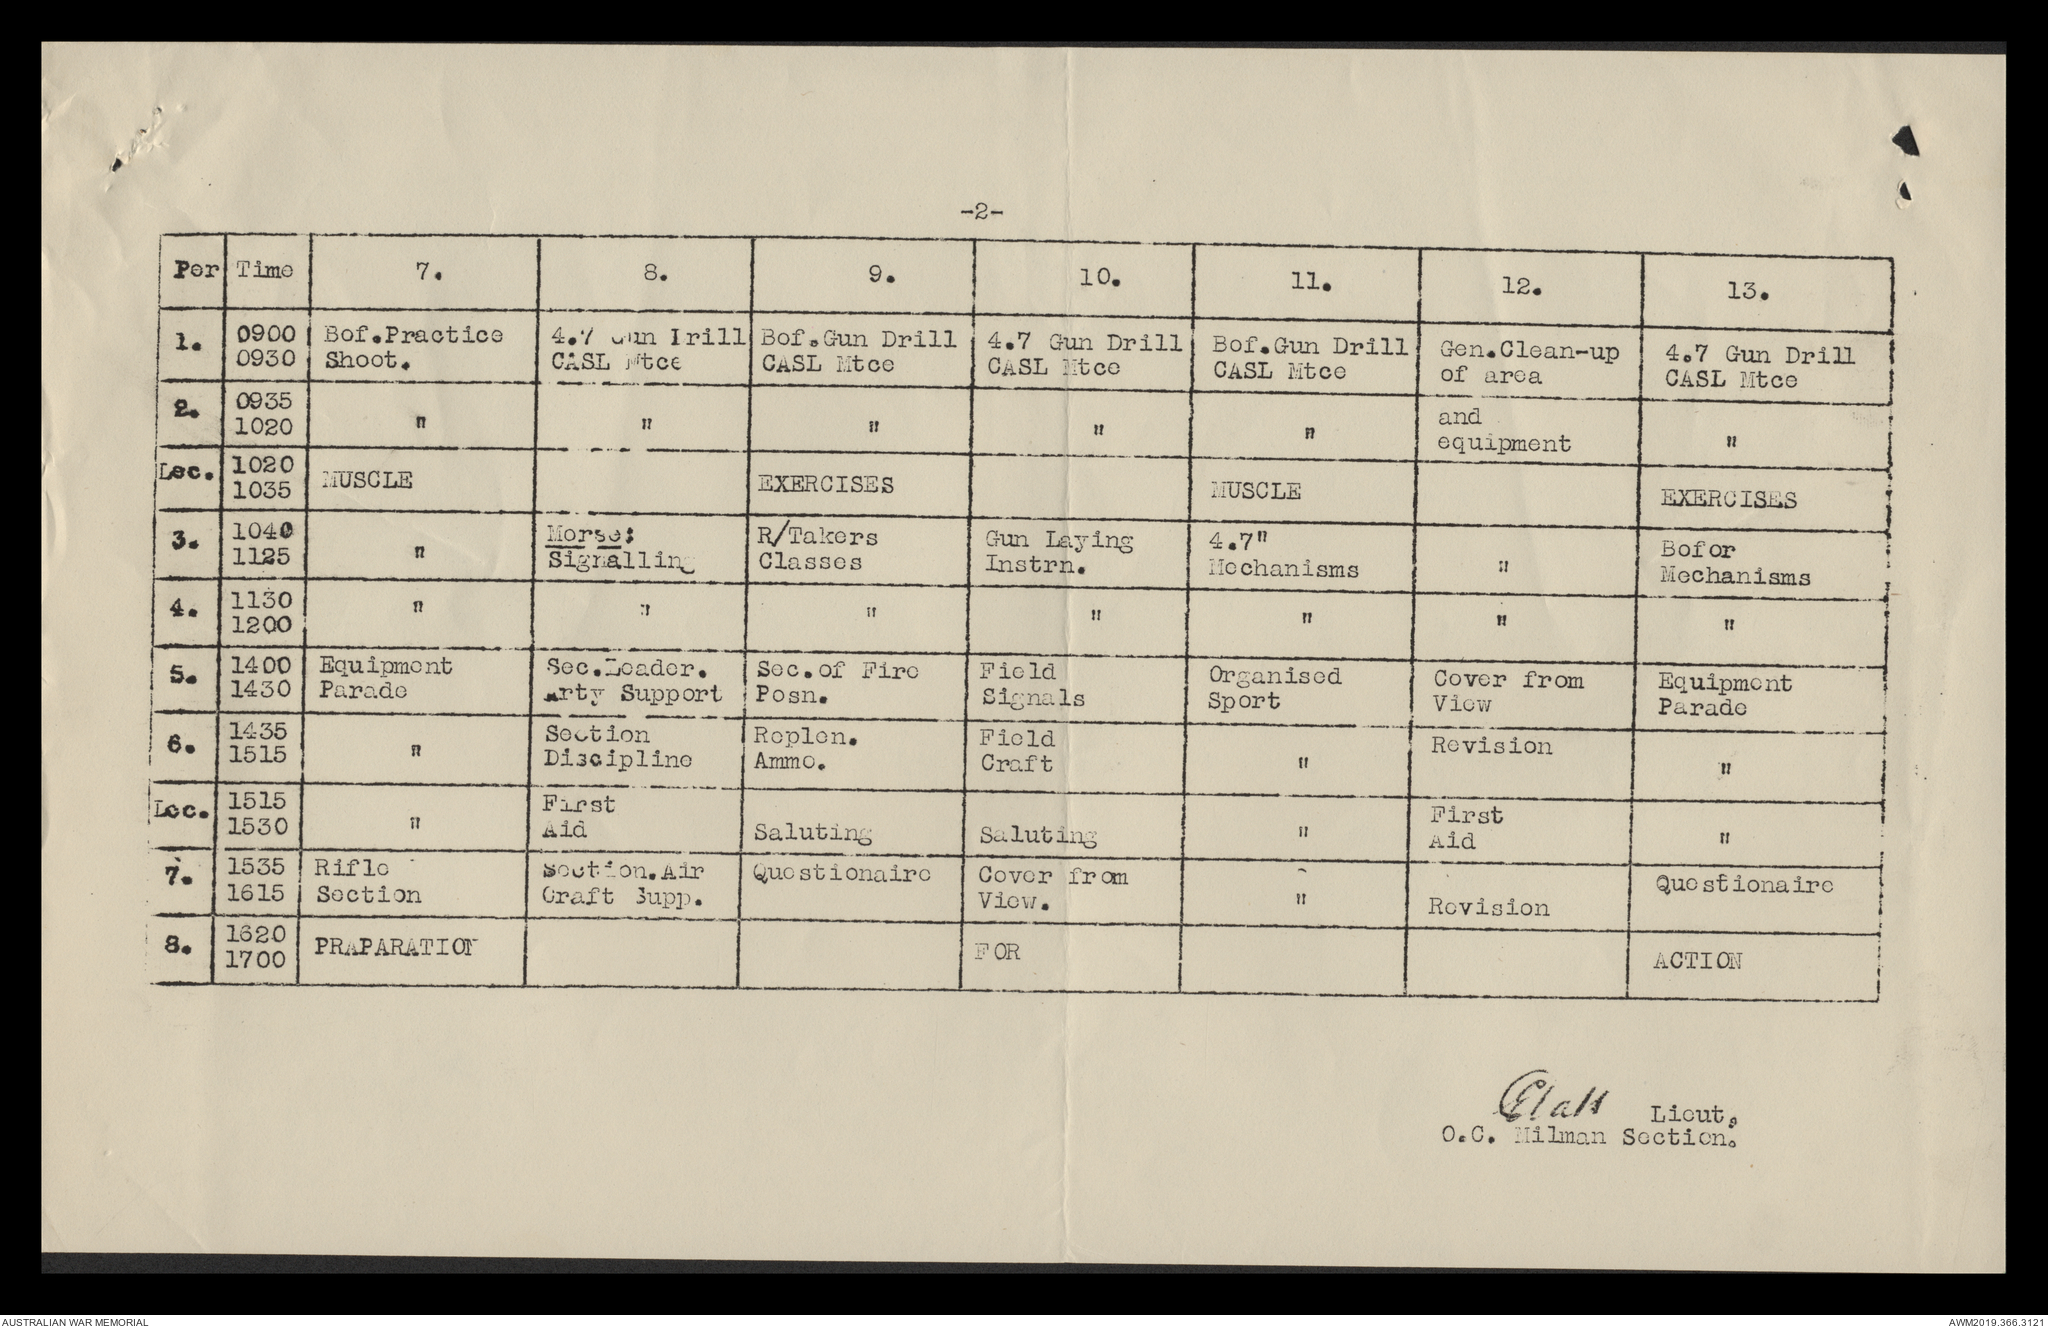 -2-
Per Time 7. 8. 9. 10. 11. 12. 13.
1. 0900 Bof.Practice 4.7 Gun Drill Bof.Gun Drill 4.7 Gun Drill Bof.Gun Drill Gen.Clean-up 4.7 Gun Drill
0930 Shoot. CASL Mtce CASL Mtce CASL Mtce CASL Mtce of area CASL Mtce
2. 0935 and
1020 " " " " " equipment "
Lec. 1020
1035 MUSCLE EXERCISES MUSCLE EXERCISES
3. 1040 Morse: R/Takers Gun Laying 4.7" Bofor
1125 " Signalling Classes Instrn. Mechanisms " Mechanisms
4. 1130 " " " " " " "
1200
5. 1400 Equipment Sec.Leader. Sec.of Fire Field Organised Cover from Equipment
1430 Parade Arty Support Posn. Signals Sport View Parade
6. 1435 Section Replen. Field Revision
1515 " Discipline Ammo. Craft " "
Lec. 1515 First First
1530 " Aid Saluting Saluting " Aid "
7. 1535 Rifle Section.Air Questionaire Cover from Questionaire
1615 Section Craft Supp. View. " Revision
8. 1620 PRAPARATION FOR ACTION
1700
Lieut.
O.C. Milman Section.
AUSTRALIAN WAR MEMORIAL
AWM2019.366.3121